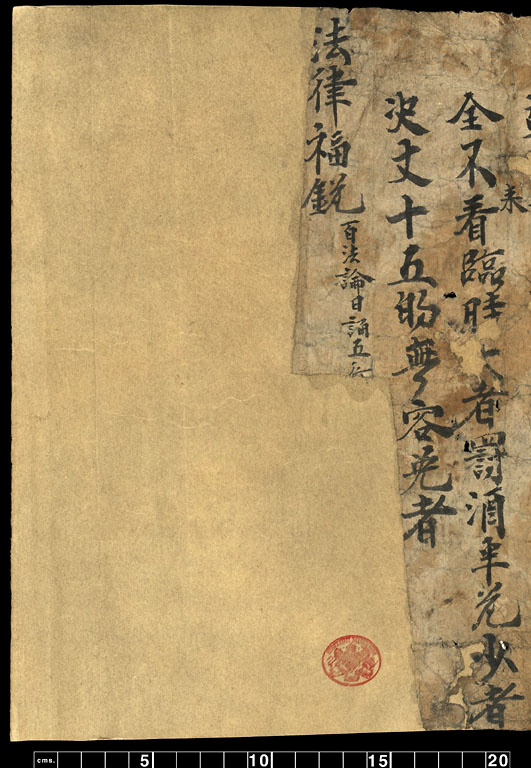 来
全不看臨時大者罰酒半瓮少者
决丈十五的無容免者
法律福銳
百法論日誦五行
cms. 5 10 15 20